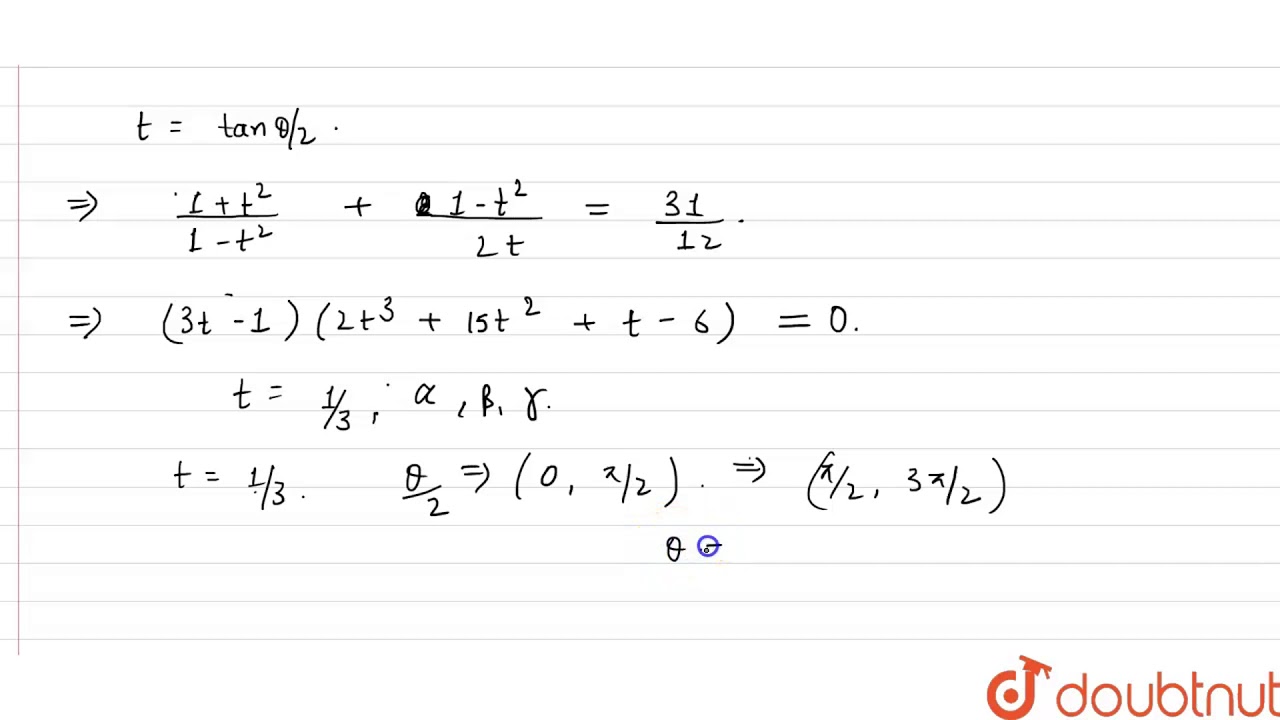 t = tan θ/2 .
⇒ (1 + t²)/(1 - t²) + (1 - t²)/(2t) = 31/12 .
⇒ (3t - 1) (2t³ + 15t² + t - 6) = 0.
t = 1/3 , α , β, γ.
t = 1/3 . θ/2 ⇒ (0, π/2) . ⇒ (π/2, 3π/2)
θ
doubtnut